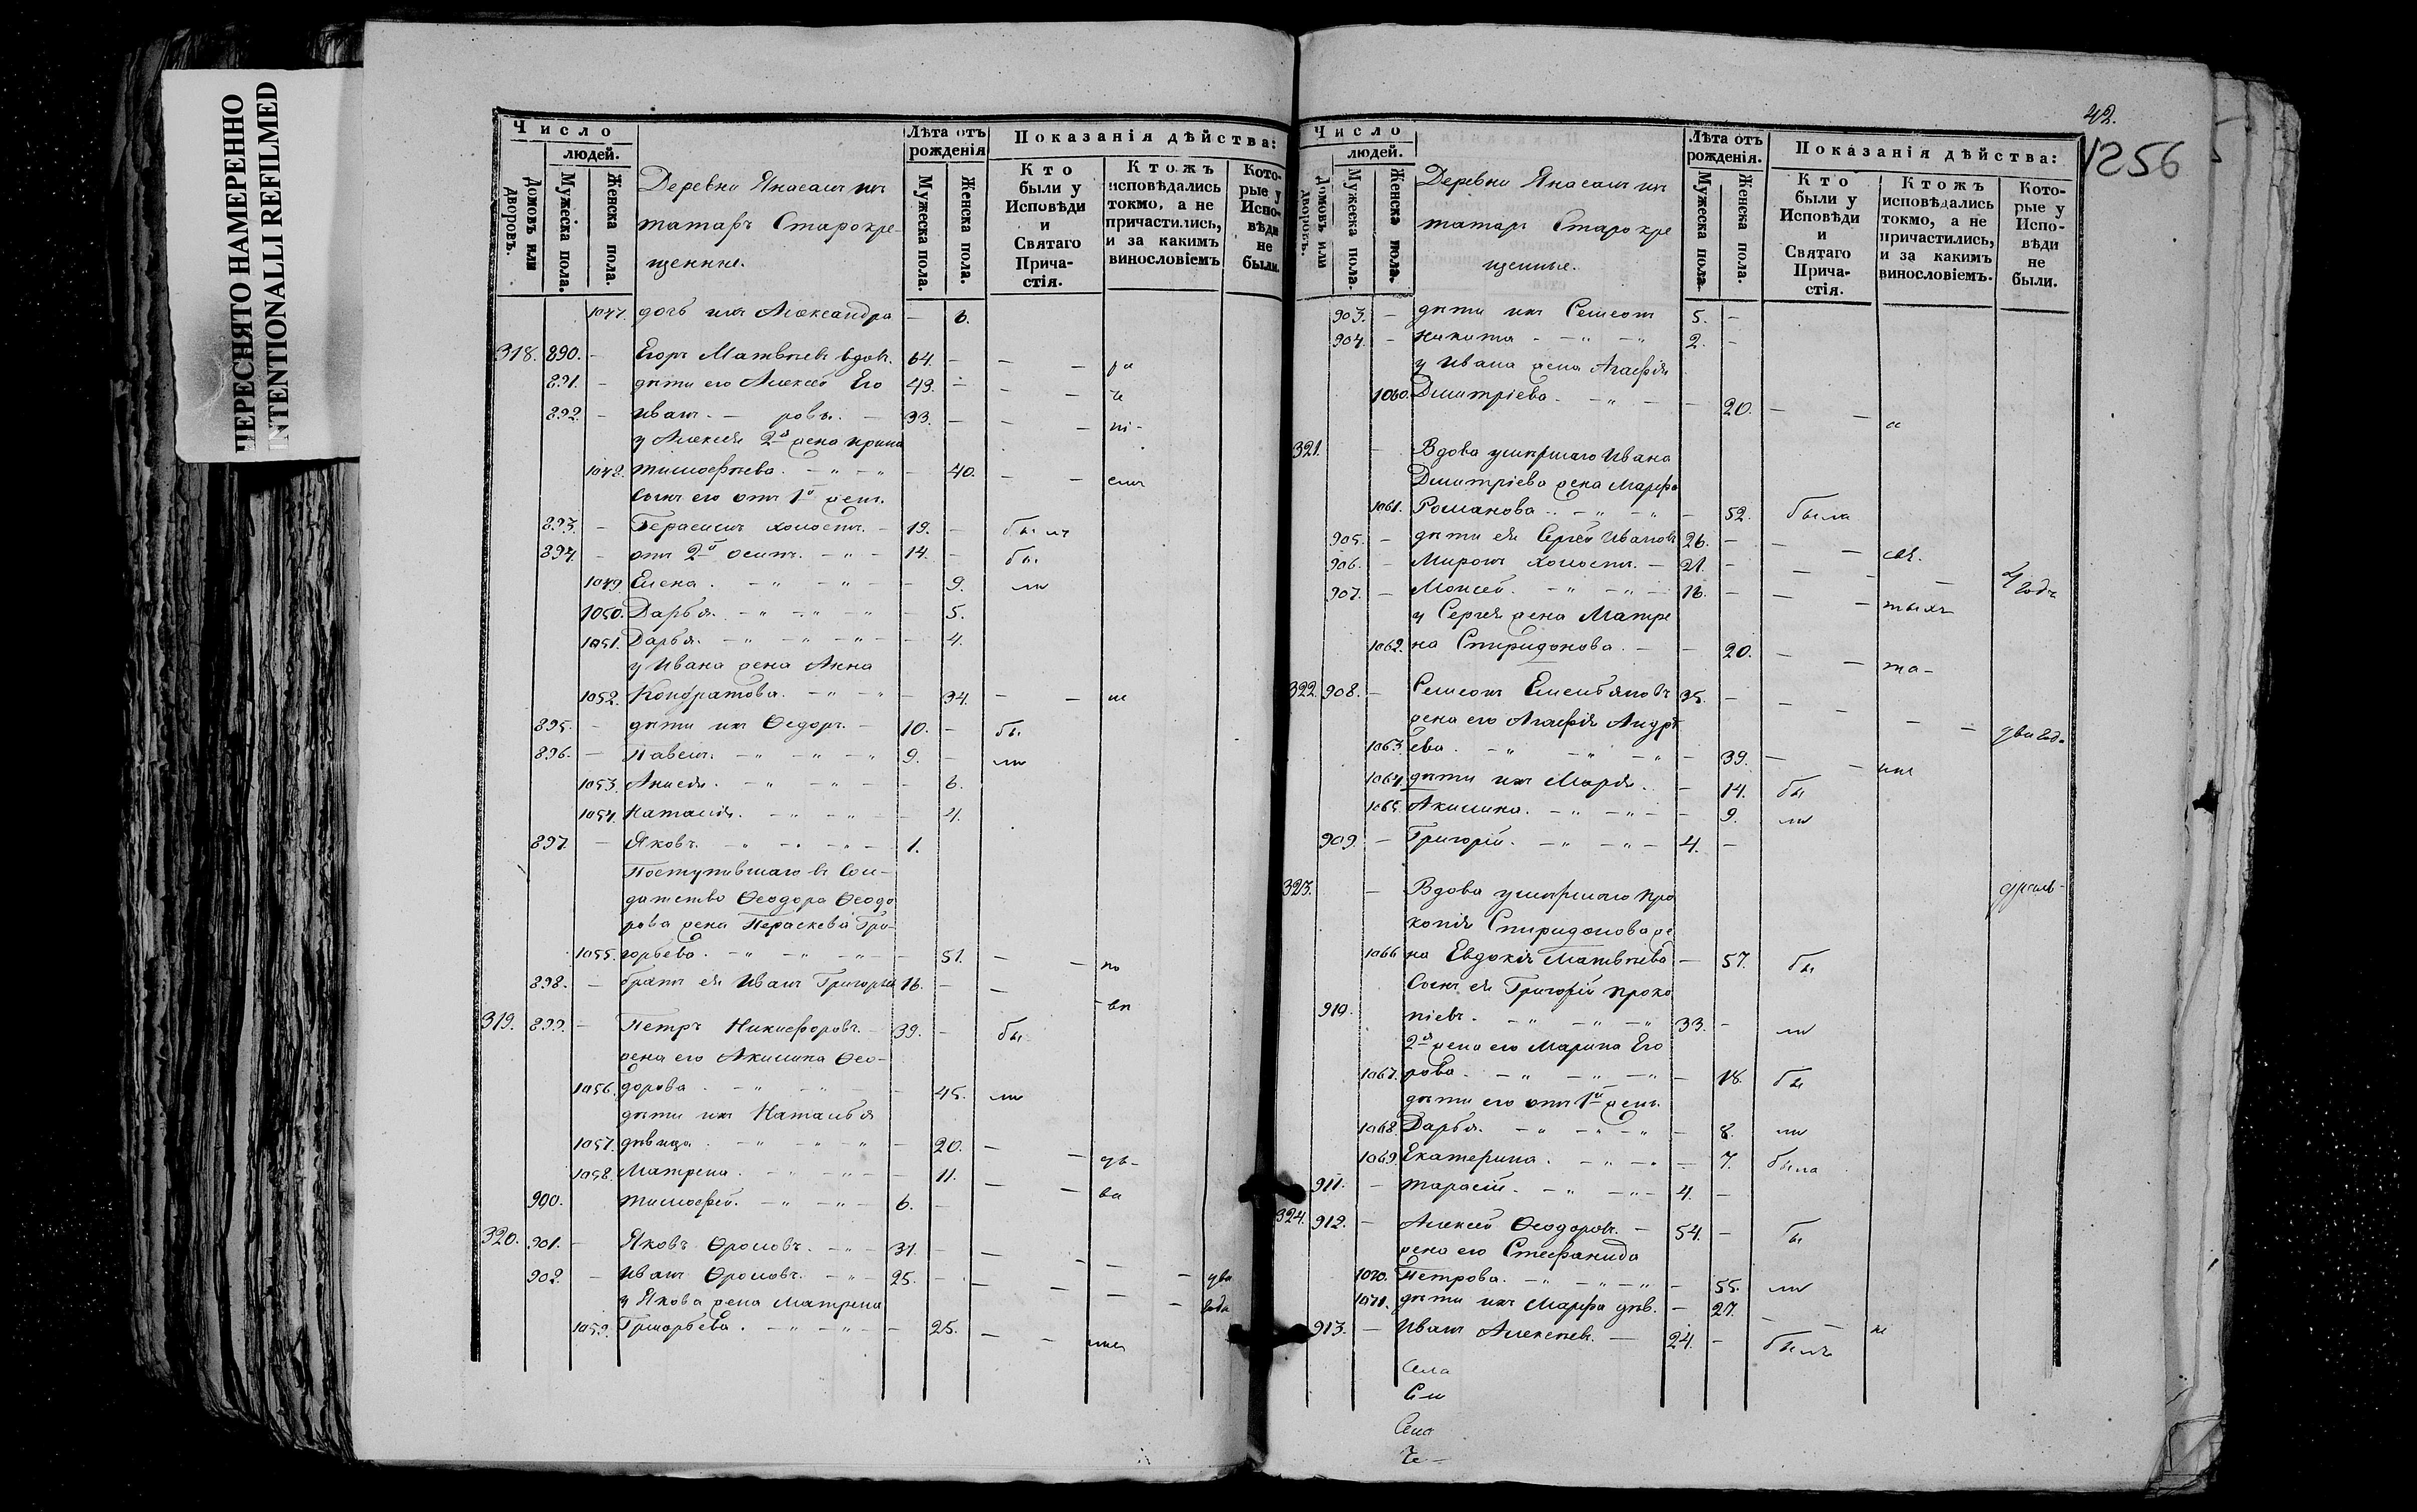 ПЕРЕСНЯТО НАМЕРЕННО
INTENTIONALLI REFILMED
Число
людей.
Домовъ или дворовъ.
Мужеска пола.
Женска пола.
Деревни
татаръ Старокре-
щенные.
Лѣта отъ рожденія
Мужеска пола.
Женска пола.
Показанія дѣйства:
Кто были у Исповѣди и Святаго Прича-стія.
Ктожъ исповѣдались токмо, а не причастились, и за какимъ винословіемъ
Кото-рые у Испо-вѣди не были.
1047. дочь ихъ Александра — 6.
318. 890. — Егоръ Матвѣевъ вдов. 64. —
891. — дѣти его Алексей Его 43. —
892. — Иванъ — ровы. — 33. —
у Алексея 2я жена Ирина
1048. Тимофѣева. — 40.
Сынъ его отъ 1й жен.
893. — Герасимъ холостъ. — 19. — былъ
894. — отъ 2й 14. — бы
1049. Елена. — 9. ли
1050. Дарья. — 5.
1051. Дарья. — 4.
у Ивана жена Анна
1052. Кондратова. — 34.
895. — дѣти ихъ Ѳедоръ. — 10. — бы
896. — Павелъ. 9. — ли
1053. — 6.
1054. Наталія. — 4.
897. — Яковъ. 1.
Поступившаго въ Сол-
датство Ѳеодора Ѳеодо
рова жена Параскева Гри-
1055. горьева. — 51.
898. — братъ ея Иванъ Григорьев 16. —
319. 899. — Петръ Никифоровъ. — 39. — бы
жена его Акилина Ѳео-
1056. дорова — 45. ли
дѣти ихъ Наталья
1057. дѣвица. — 20.
1058. Матрена. — 11.
900. Тимофей. 6. —
320. 901. — Яковъ Ѳроловъ. 31. —
902. — Иванъ Ѳроловъ. 25. — два
у Якова жена Матрена года
1059. Григорьева. — 25.
42.
1256
Число
людей.
Домовъ или дворовъ.
Мужеска пола.
Женска пола.
Деревни
татаръ Старокре
щенные.
Лѣта отъ рожденія.
Мужеска пола.
Женска пола.
Показанія дѣйства:
Кто были у Исповѣди и Святаго Прича-стія.
Ктожъ исповѣдались токмо, а не причастились, и за какимъ винословіемъ.
Кото-рые у Испо-вѣди не были.
903. — дѣти ихъ Семенъ 5. —
904. — Никита 2. —
у Ивана жена Агафія
1060. Дмитріева. — 20.
321. — Вдова умершаго Ивана
Дмитріева жена Марфа
1061. Романова — 52. была
905. — дѣти ея Сергей Ивановъ 26. —
906. — Миронъ холостъ. — 21. —
907. — Моисей. 16. —
у Сергея жена Матре
1062. на Спиридонова. — 20.
322. 908. — Семенъ Емельяновъ 35. —
жена его Агафія Андре
1063. ева. — 39.
1064. дѣти ихъ Марья. — 14. бы
1065. Акилина. — 9. ли
909. — Григорій. 4. —
323. — Вдова умершаго Про
копія Спиридонова же
1066. на Евдокія Матвѣева — 57. бы
Сынъ ея Григорій Проко
910. піевъ. 33. — ли
2я жена его Марина Его
1067. рова. — 18. бы
дѣти его отъ 1й жен.
1068. Дарья. — 8. ли
1069. Екатерина. — 7. была
911. — Тарасій. 4. —
324. 912. — Алексей Ѳеодоровъ. — 54. — бы
жена его Стефанида
1070. Петрова. — 55. ли
1071. дѣти ихъ Марфа дѣв. — 27.
913. — Иванъ Алексѣевъ. — 24. — былъ
Села